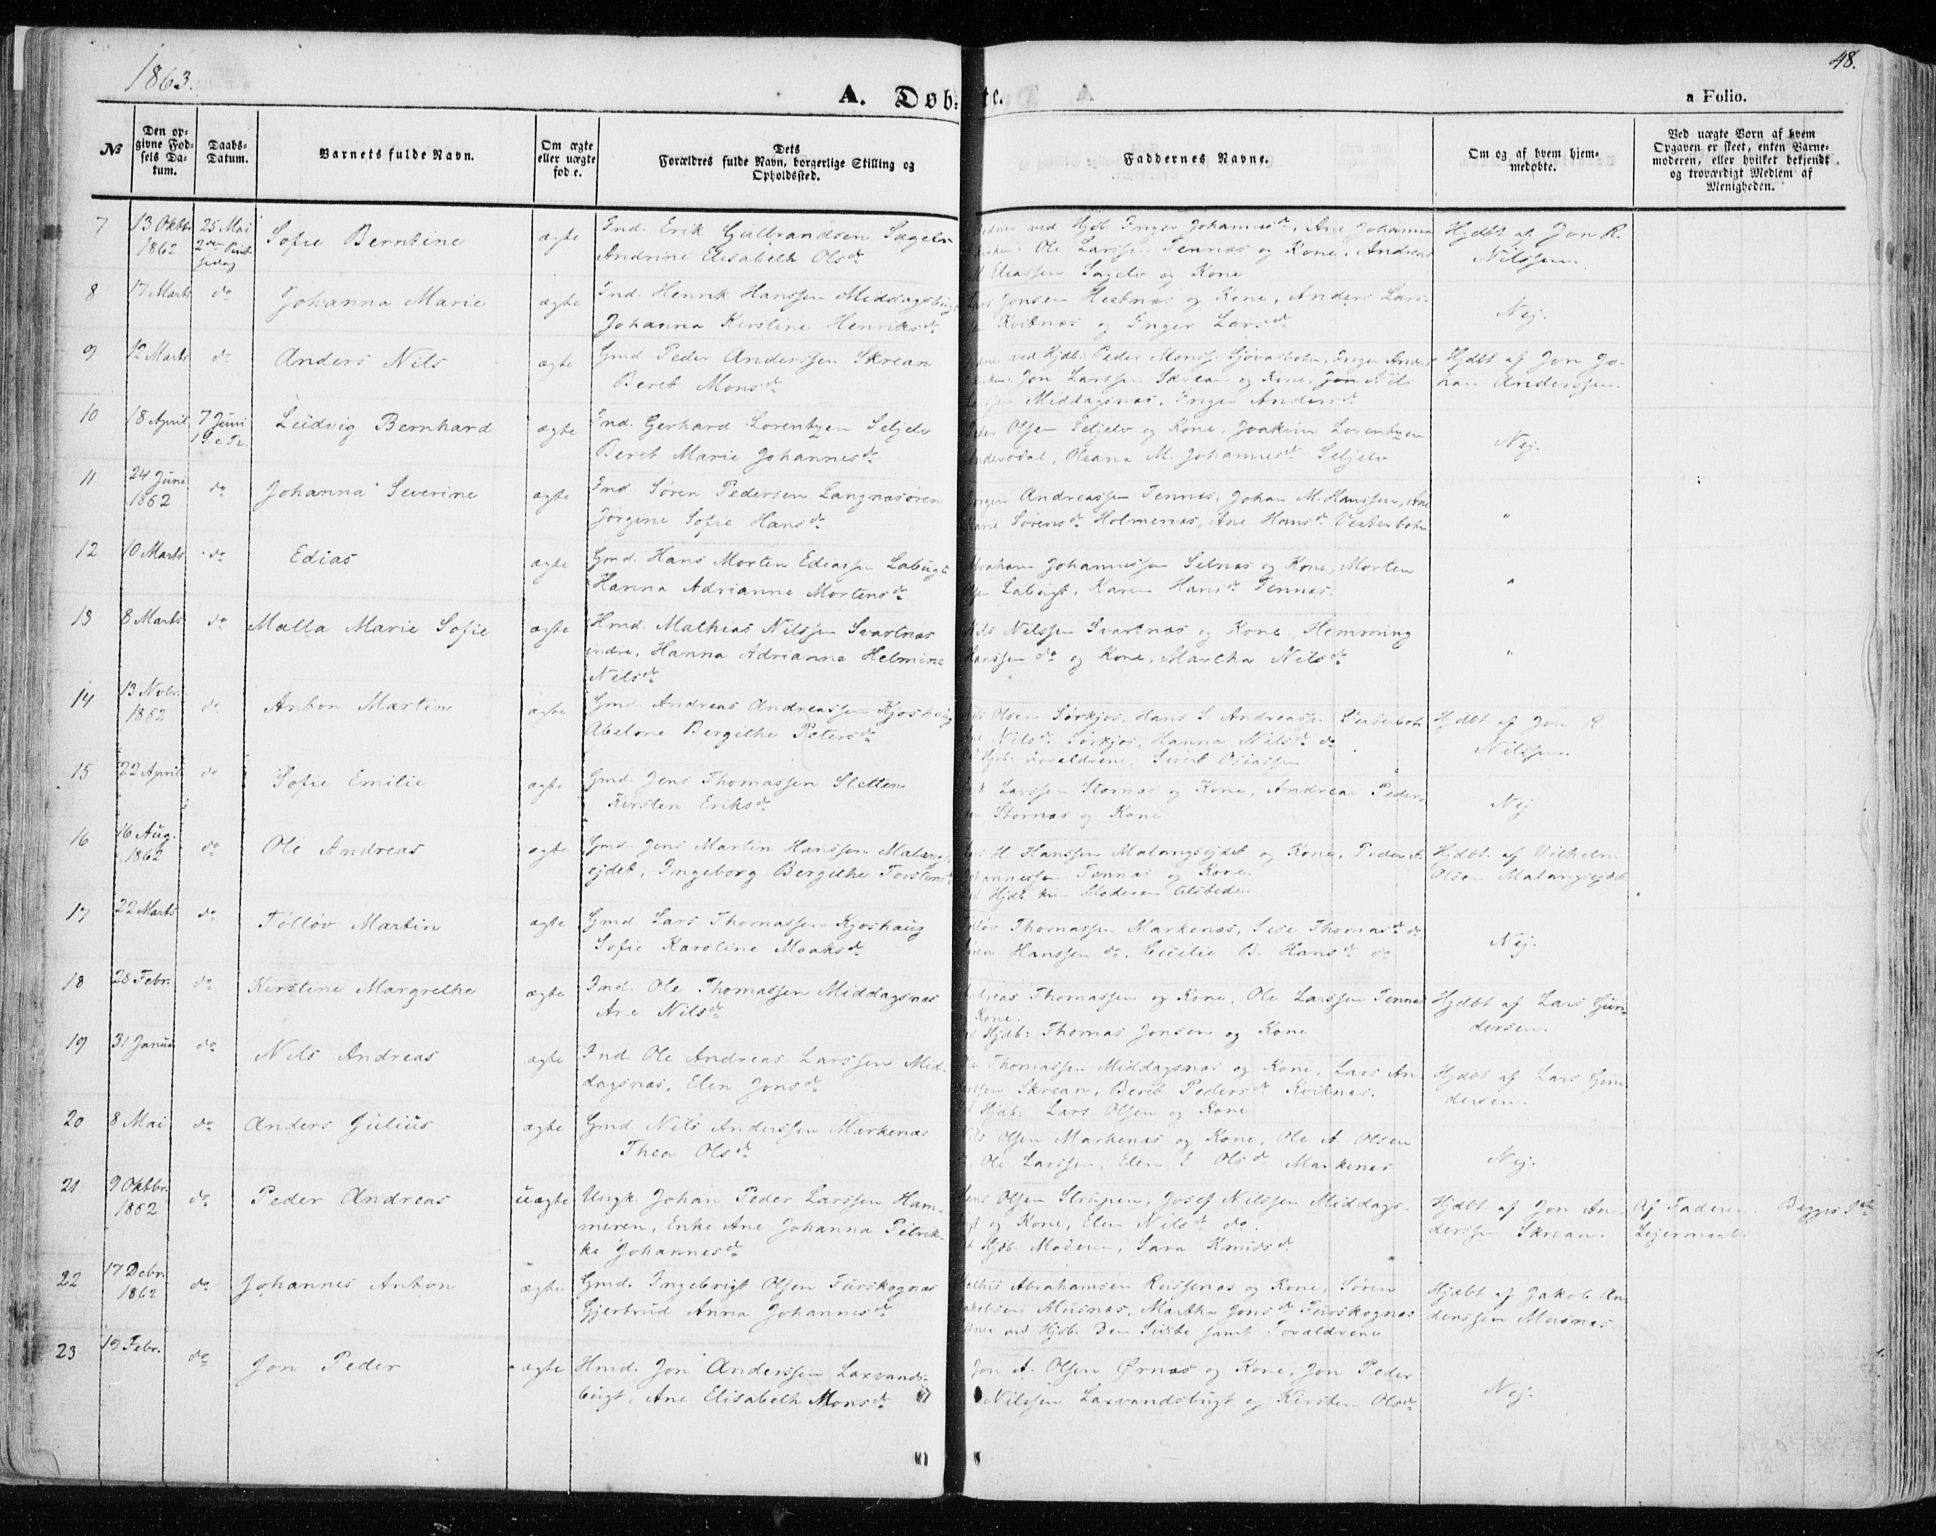 1863.
48.
A. Døbte.
a Folio.
No
Den opgivne Fødsels Datum.
Daabs-Datum.
Barnets fulde Navn.
Om ægte eller uægte fød e.
Dets Forældres fulde Navn, borgerlige Stilling og Opholdssted.
Faddernes Navne.
Om og af hvem hjemmedøbte.
Ved uægte Børn af hvem Opgaven er skeet, enten Barnemoderen, eller hvilket bekjendt og troværdigt Medlem af Menigheden.
7 13 Oktbr. 1862 25 Mai Sofie Berntine ægte Ind. Erik Gulbrandsen Sagelv
Andrine Elisabeth Olsdr
ved Hjdb. Inger Johannesdr, Ane Johanna
Ole Larssen Tennæs og Kone, Andreas
Eliassen Sagelv og Kone
Hjdbt af Jon R. Nilssen.
8 17 Marts do Johanna Marie ægte Ind. Henrik Hanssen Middagsbugt
Johanna Kirstine Henriksdr
Jonsen Hestnæs og Kone, Anders Lars-
Kvitnæs og Inger Larsdr
Nej.
9 12 Marts do Anders Nils ægte Gmd Peder Anderssen Skrean
Beret Monsdr
ved Hjdb: Peder Monss. Inger Anders
Jon Larssen Skrean og Kone, Jon Nils
Middagsnæs, Inger Andersdr
Hjdbt af Jon Johan Anderssen.
10 18 April 7 Juni Ludvig Bernhard ægte Ind. Gerhard Lorentzen Seljelv
Beret Marie Johannesdr
Peder Olsen Seljelv og Kone, Joakim Lorentzen
Oleana M. Johannesdr Seljelv
Nej.
11 24 Juni 1862 do Johanna Severine ægte Ind Søren Pedersen Langnæsøren
Jørgine Sofie Hansdr
Jørgen Andreassen Tennæs, Johan M. Hanssen, Ane
Marie Sørensdr Holmenæs, Ane Hansdr Vesterbotn
"
12 10 Marts do Edias ægte Gmd. Hans Morten Ediassen Labugt
Hanna Adrianne Mortensdr
Abraham Johannessen Selnæs og Kone, Morten
Olsen Labugt, Karen Hansdr Tennæs.
"
13 8 Marts do Malla Marie Sofie ægte Hmd. Mathias Nilssen Svartnæs
indre, Hanna Adrianne Helmine
Nilsdr
Nils Nilssen Svartnæs og Kone, Hemming
Hanssen do og Kone, Martha Nilsdr
"
14 13 Novbr. 1862 do Anton Martin ægte Gmd. Andreas Andreassen Kjoshaug
Abelone Bergithe Petersdr
Nils Olsen Sørkjos, Hans S Andreassen Vesterbotn
Nilsdr Sørkjos, Hanna Nilsdr do
Hjdb. Forældrene, Sivert Osiassen
Hjdbt af Jon R Nilssen.
15 22 April do Sofie Emilie ægte Gmd. Jens Thomassen Sletten
Kirsten Eriksdr
Larssen Stornæs og Kone, Andreas Peder-
Stornæs og Kone
Nej
16 16 Aug. 1862 do Ole Andreas ægte Gmd. Jens Martin Hanssen Malangs-
ejdet, Ingeborg Bergithe Torstensdr
H. Hanssen Malangsejdet og Kone, Peder A.
Johannessen Tennæs og Kone
Hjdb. kun Moderen tilstede.
Hjdbt. af Vilhelm Olsen Malangsejdet
17 22 Marts do Tølløv Martin ægte Gmd Lars Thomassen Kjoshaug
Sofie Karoline Moaksdr
Tølløv Thomassen Markenæs, Sise Thomasdr do
Hanssen do, Cecilie B. Hansdr do
Nej.
18 28 Febr. do Kirstine Margrethe ægte Ind. Ole Thomassen Middagsnæs
Ane Nilsdr
Andreas Thomassen og Kone, Ole Larssen Tennæs
Kone.
Hjdb: Thomas Jonsen og Kone
Hjdbt af Lars Gundersen.
19 31 Januar do Nils Andreas ægte Ind Ole Andreas Larssen Mid-
dagsnæs, Elen Jonsdr
Ole Thomassen Middagsnæs og Kone, Lars An-
derssen Skrean, Beret Pedersdr Kvitnæs.
Hjdb: Lars Olsen og Kone
Hjdbt af Lars Gundersen.
20 8 Mai do Anders Julius ægte Gmd Nils Anderssen Markenæs
Thea Olsdr
Nils Olsen Markenæs og Kone, Ole A Olsen
Ole Larssen, Elen E Olsdr Markenæs
Nej.
21 9 Oktbr. 1862 do Peder Andreas uægte Ungk. Johan Peder Larssen Ham-
meren, Enke Ane Johanna Petrik-
ke Johannesdr
Hans Olsen Strupen, Josef Nilssen Middags-
og Kone, Elen Nilsdr do.
Hjdb. Moderen, Sara Knudsdr
Hjdbt af Jon Anderssen Skrean.
Af Faderen. Begges 1ste Lejermaal.
22 17 Debr. 1862 do Johannes Anton ægte Gmd. Ingebrigt Olsen Furskognæs
Gjertrud Anna Johannesdr
Mathis Abrahamsen Russenæs og Kone, Søren
Jakobsen Musnæs, Martha Jonsdr Furskognæs
ved Hjdb. Den Sidste samt Forældrene
Hjdbt af Jakob Anderssen Musnæs
23 19 Febr. do Jon Peder ægte Hmd. Jon Anderssen Laxvands-
bugt, Ane Elisabeth Monsdr
Jon A. Olsen Ørnæs og Kone, Jon Peder
Nilssen Laxvandsbugt og Kirsten Olsdr
Nej.